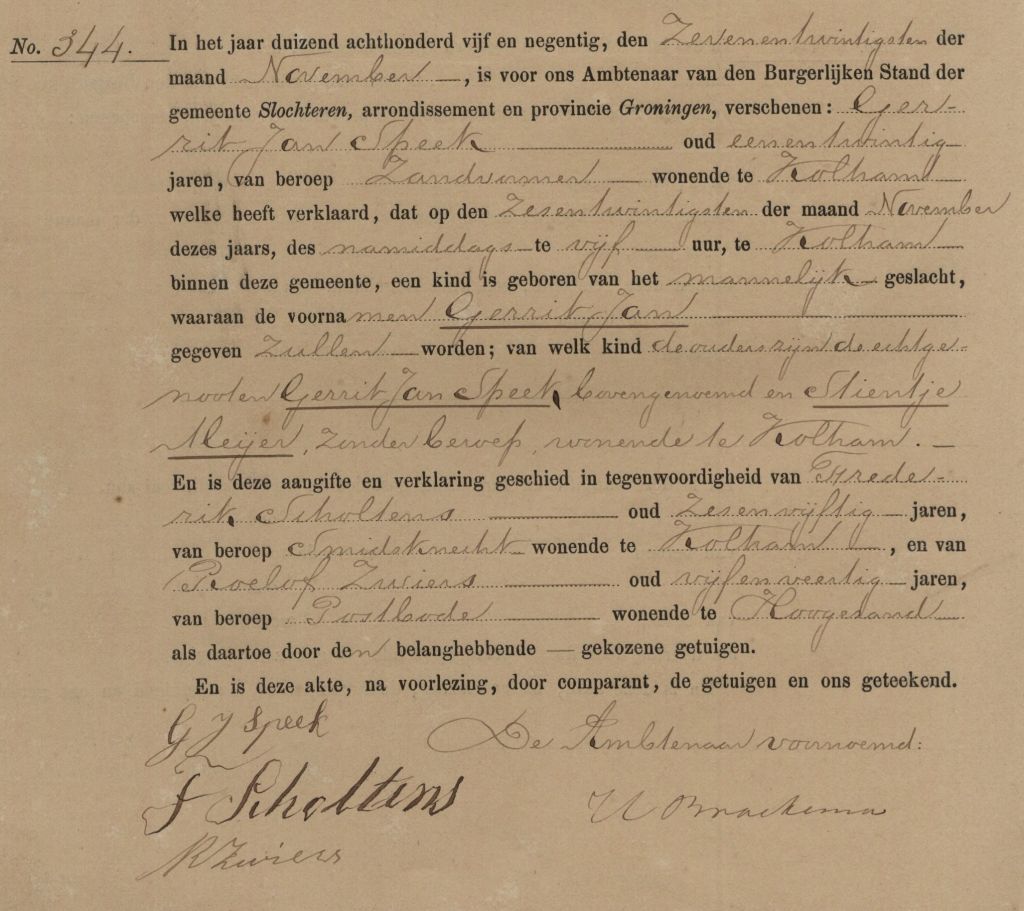 No. 344. In het jaar duizend achthonderd vijf en negentig, den Zevenentwintigsten der
maand November, is voor ons Ambtenaar van den Burgerlijken Stand der
gemeente Slochteren, arrondissement en provincie Groningen, verschenen: Ger-
rit Jan Speek oud eenentwintig
jaren, van beroep Zandvormer wonende te Kolham
welke heeft verklaard, dat op den Zesentwintigsten der maand November
dezes jaars, des namiddags te vijf uur, te Kolham
binnen deze gemeente, een kind is geboren van het mannelijk geslacht,
waaraan de voornamen Gerrit Jan
gegeven zullen worden; van welk kind de ouders zijn de echtge-
nooten Gerrit Jan Speek bovengenoemd en Stientje
Meijer, zonder beroep, wonende te Kolham.
En is deze aangifte en verklaring geschied in tegenwoordigheid van Frede-
rik Scholtens oud Zesenvijftig jaren,
van beroep Smidsknecht wonende te Kolham, en van
Roelof Zwiers oud vijfenveertig jaren,
van beroep Postbode wonende te Hoogezand
als daartoe door den belanghebbende gekozene getuigen.
En is deze akte, na voorlezing, door comparant, de getuigen en ons geteekend.
G J Speek
De Ambtenaar voornoemd:
F Scholtens
R Zwiers